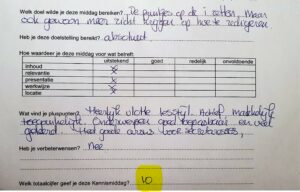 Welk doel wilde je deze middag bereiken? De puntjes op de i zetten, maar
ook gewoon meer zicht krijgen op hoe te redigeren
Heb je deze doelstelling bereikt? absoluut
Hoe waardeer je deze middag voor wat betreft:
uitstekend goed redelijk onvoldoende
inhoud X
relevantie X
presentatie X
werkwijze X
locatie X
Wat vind je pluspunten? Heerlijk vlotte lesstijl. Actief, makkelijk
Onderwerpen goed toepasbaar en veel
geleerd. Heel goede cursus voor secretaresses,
Heb je verbeterwensen? Nee
Welk totaalcijfer geef je deze Kennismiddag? 10